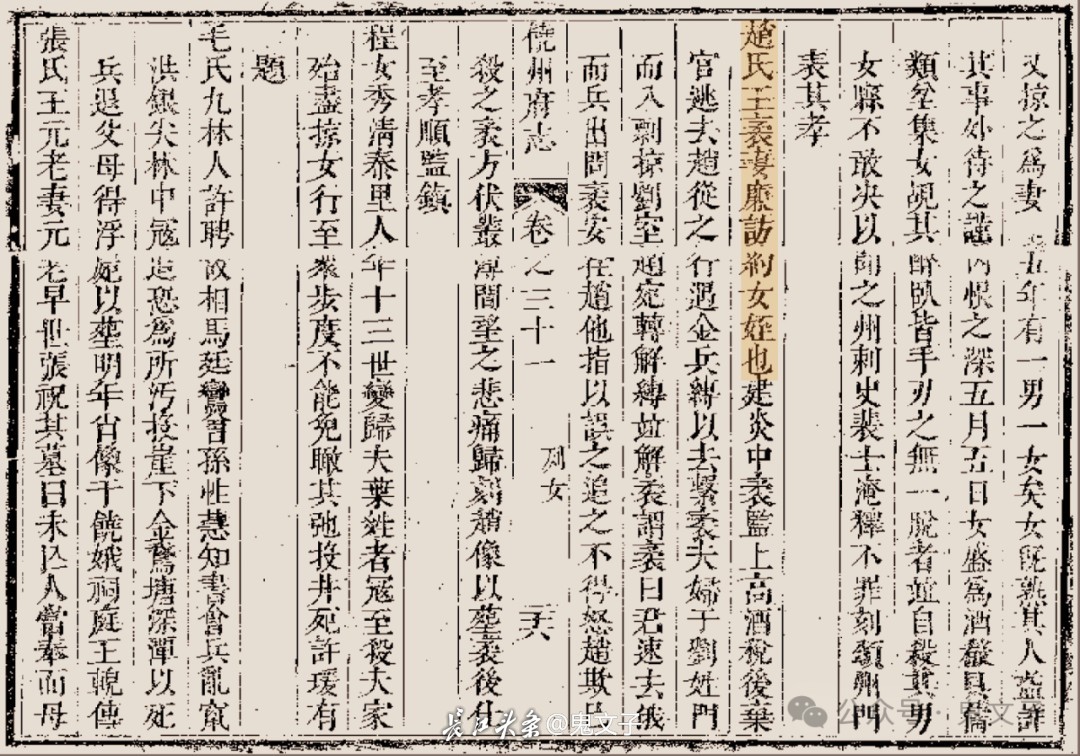 又掠之爲妻五年有一男一女矣女旣熟其人盡
其事外待之謹內恨之深五月五日女盛爲酒殽具
類坌集女覘其醉臥皆手刃之無一脫者並自殺其男
女縣不敢决以聞之州刺史裴士淹釋不罪刻頌州門
表其孝
趙氏王袤妻廉訪約女姪也建炎中袤監上高酒稅後棄
官逃去趙從之行遇金兵縛以去繫袤夫婦于劉姓門
而入剽掠劉室趙宛轉解縛並解袤謂袤曰君速去俄
而兵出問袤安在趙他指以誤之追之不得怒趙欺已
饒州府志 卷之三十一 列女 二六
殺之袤方伏叢薄間望之悲痛歸刻趙像以葬袤後仕
至孝順監鎮
程女秀清泰里人年十三世變歸夫葉姓者寇至殺夫家
殆盡掠女行至衆步度不能免瞰其弛投井死許瑗有
題
毛氏九林人許聘故相馬廷鸞曾孫性慧知書會兵亂竄
洪銀尖林中寇迫恐爲所汚投崖下金鵞塘深潭以死
兵退父母得浮屍以葬明年肖像于饒娥祠庭王輗傳
張氏王元老妻元老早世張祝其墓曰未亡人當奉而母
公众号·鬼文子
长江头条@鬼文子